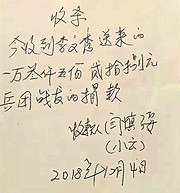 收条
今收到李文秀送来的
一万叁仟五佰贰拾捌元
兵团战友的捐款
收款 闫慎
(小六)
2018年12月4日